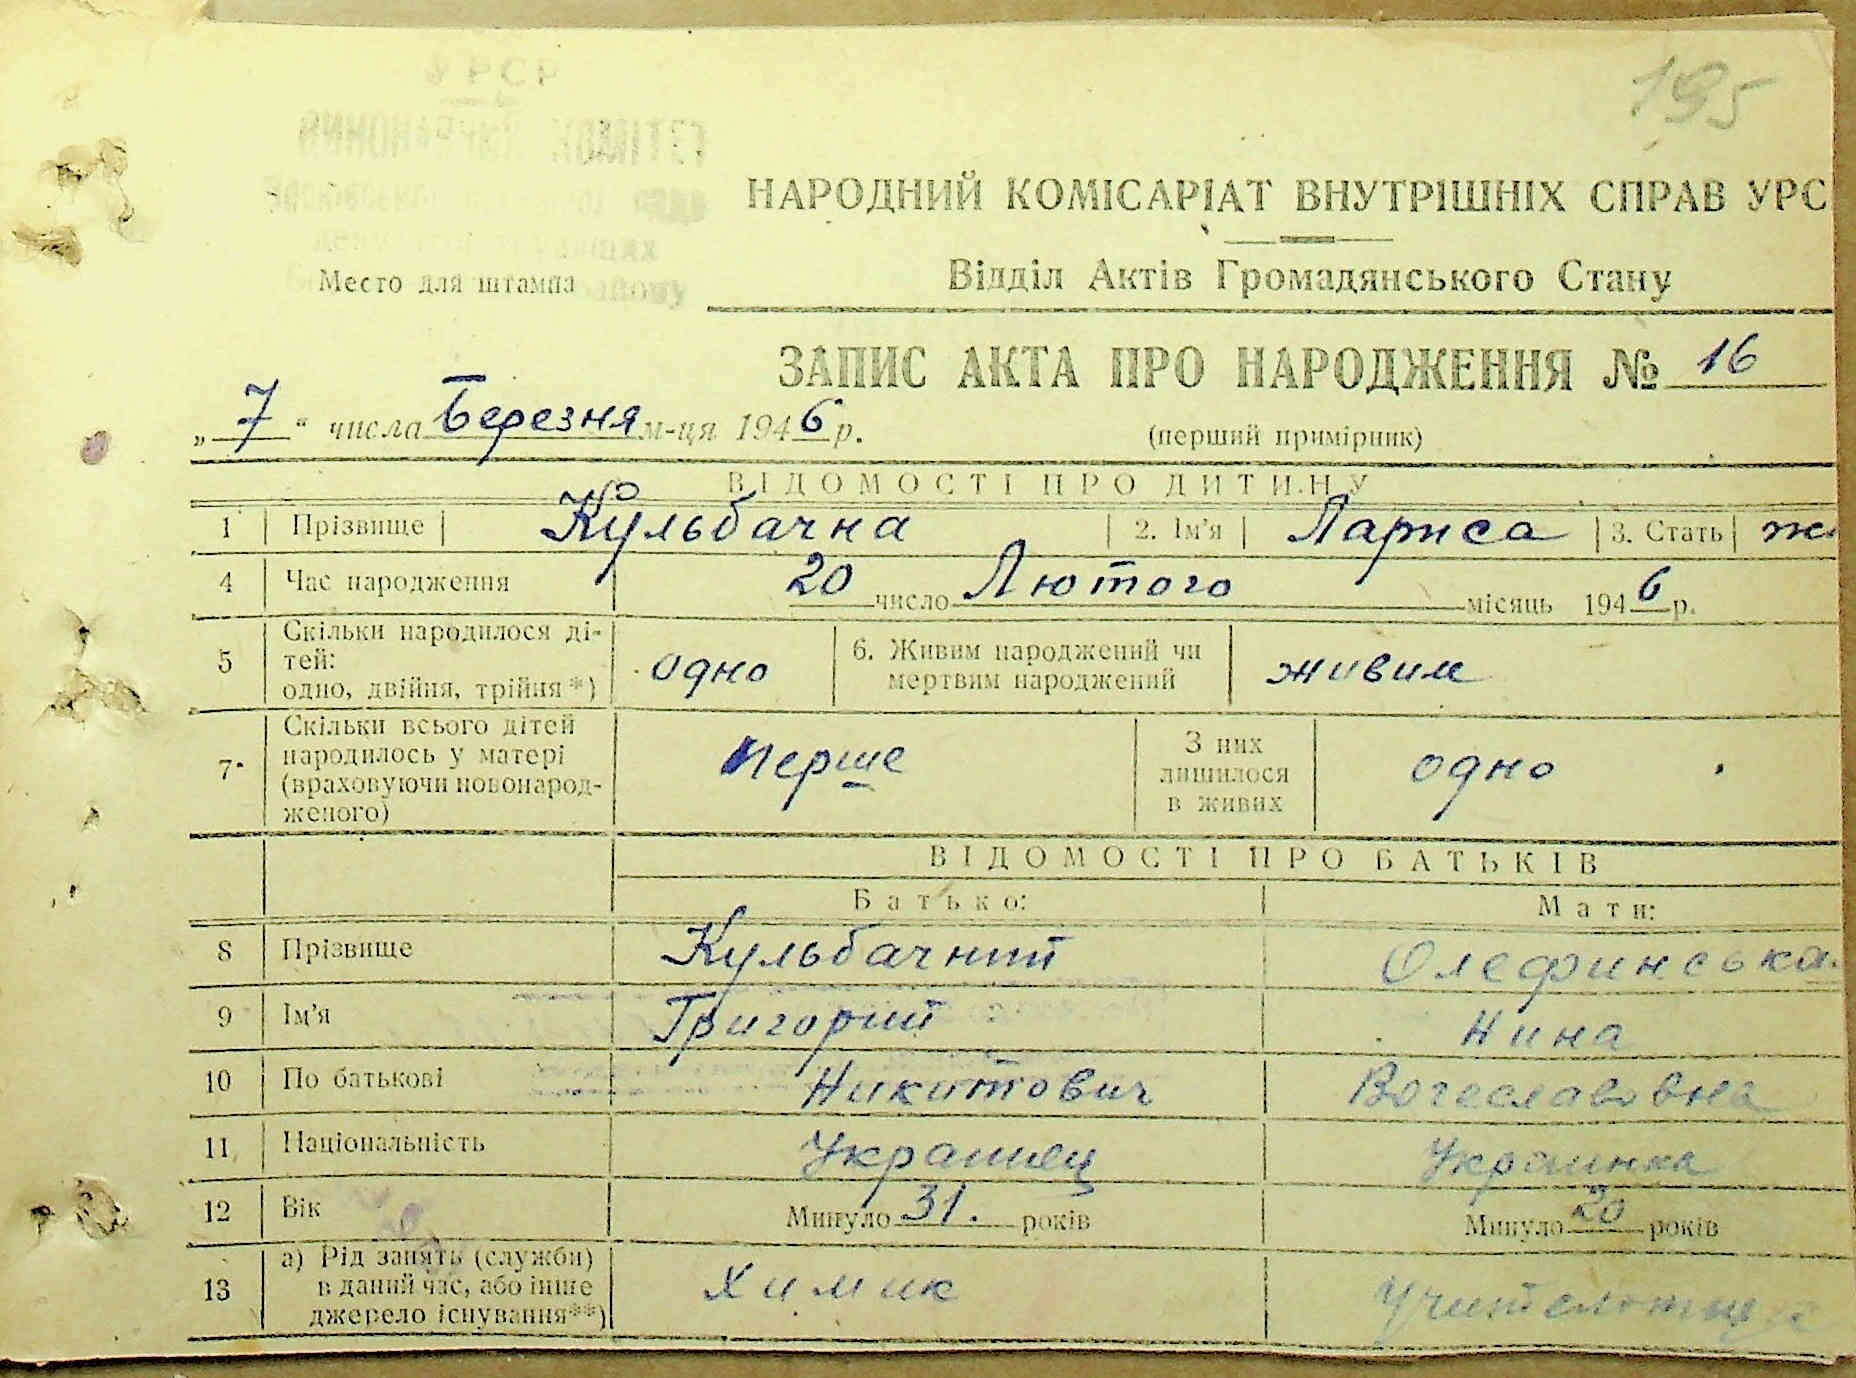 195
НАРОДНИЙ КОМІСАРІАТ ВНУТРІШНІХ СПРАВ УРС
Відділ Актів Громадянського Стану
Место для штампа
ЗАПИС АКТА ПРО НАРОДЖЕННЯ № 16
„ 7 “ числа Березня м-ця 1946 р.
(перший примірник)
ВІДОМОСТІ ПРО ДИТИНУ
1 Прізвище Кульбачна 2. Ім'я Лариса 3. Стать ж
4 Час народження 20 число Лютого місяць 1946 р.
5 Скільки народилося ді-
тей:
одно, двійня, трійня*) одно 6. Живим народжений чи
мертвим народжений живим
7 Скільки всього дітей
народилось у матері
(враховуючи новонарод-
женого) перше З них
лишилося
в живих одно
ВІДОМОСТІ ПРО БАТЬКІВ
Батько: Мати:
8 Прізвище Кульбачний Олефинська
9 Ім'я Григорий Нина
10 По батькові Никитович
11 Національність Украинец Украинка
12 Вік Минуло 31. років Минуло 20 років
13 а) Рід занять (служби)
в даний час, або інше
джерело існування**) Химик